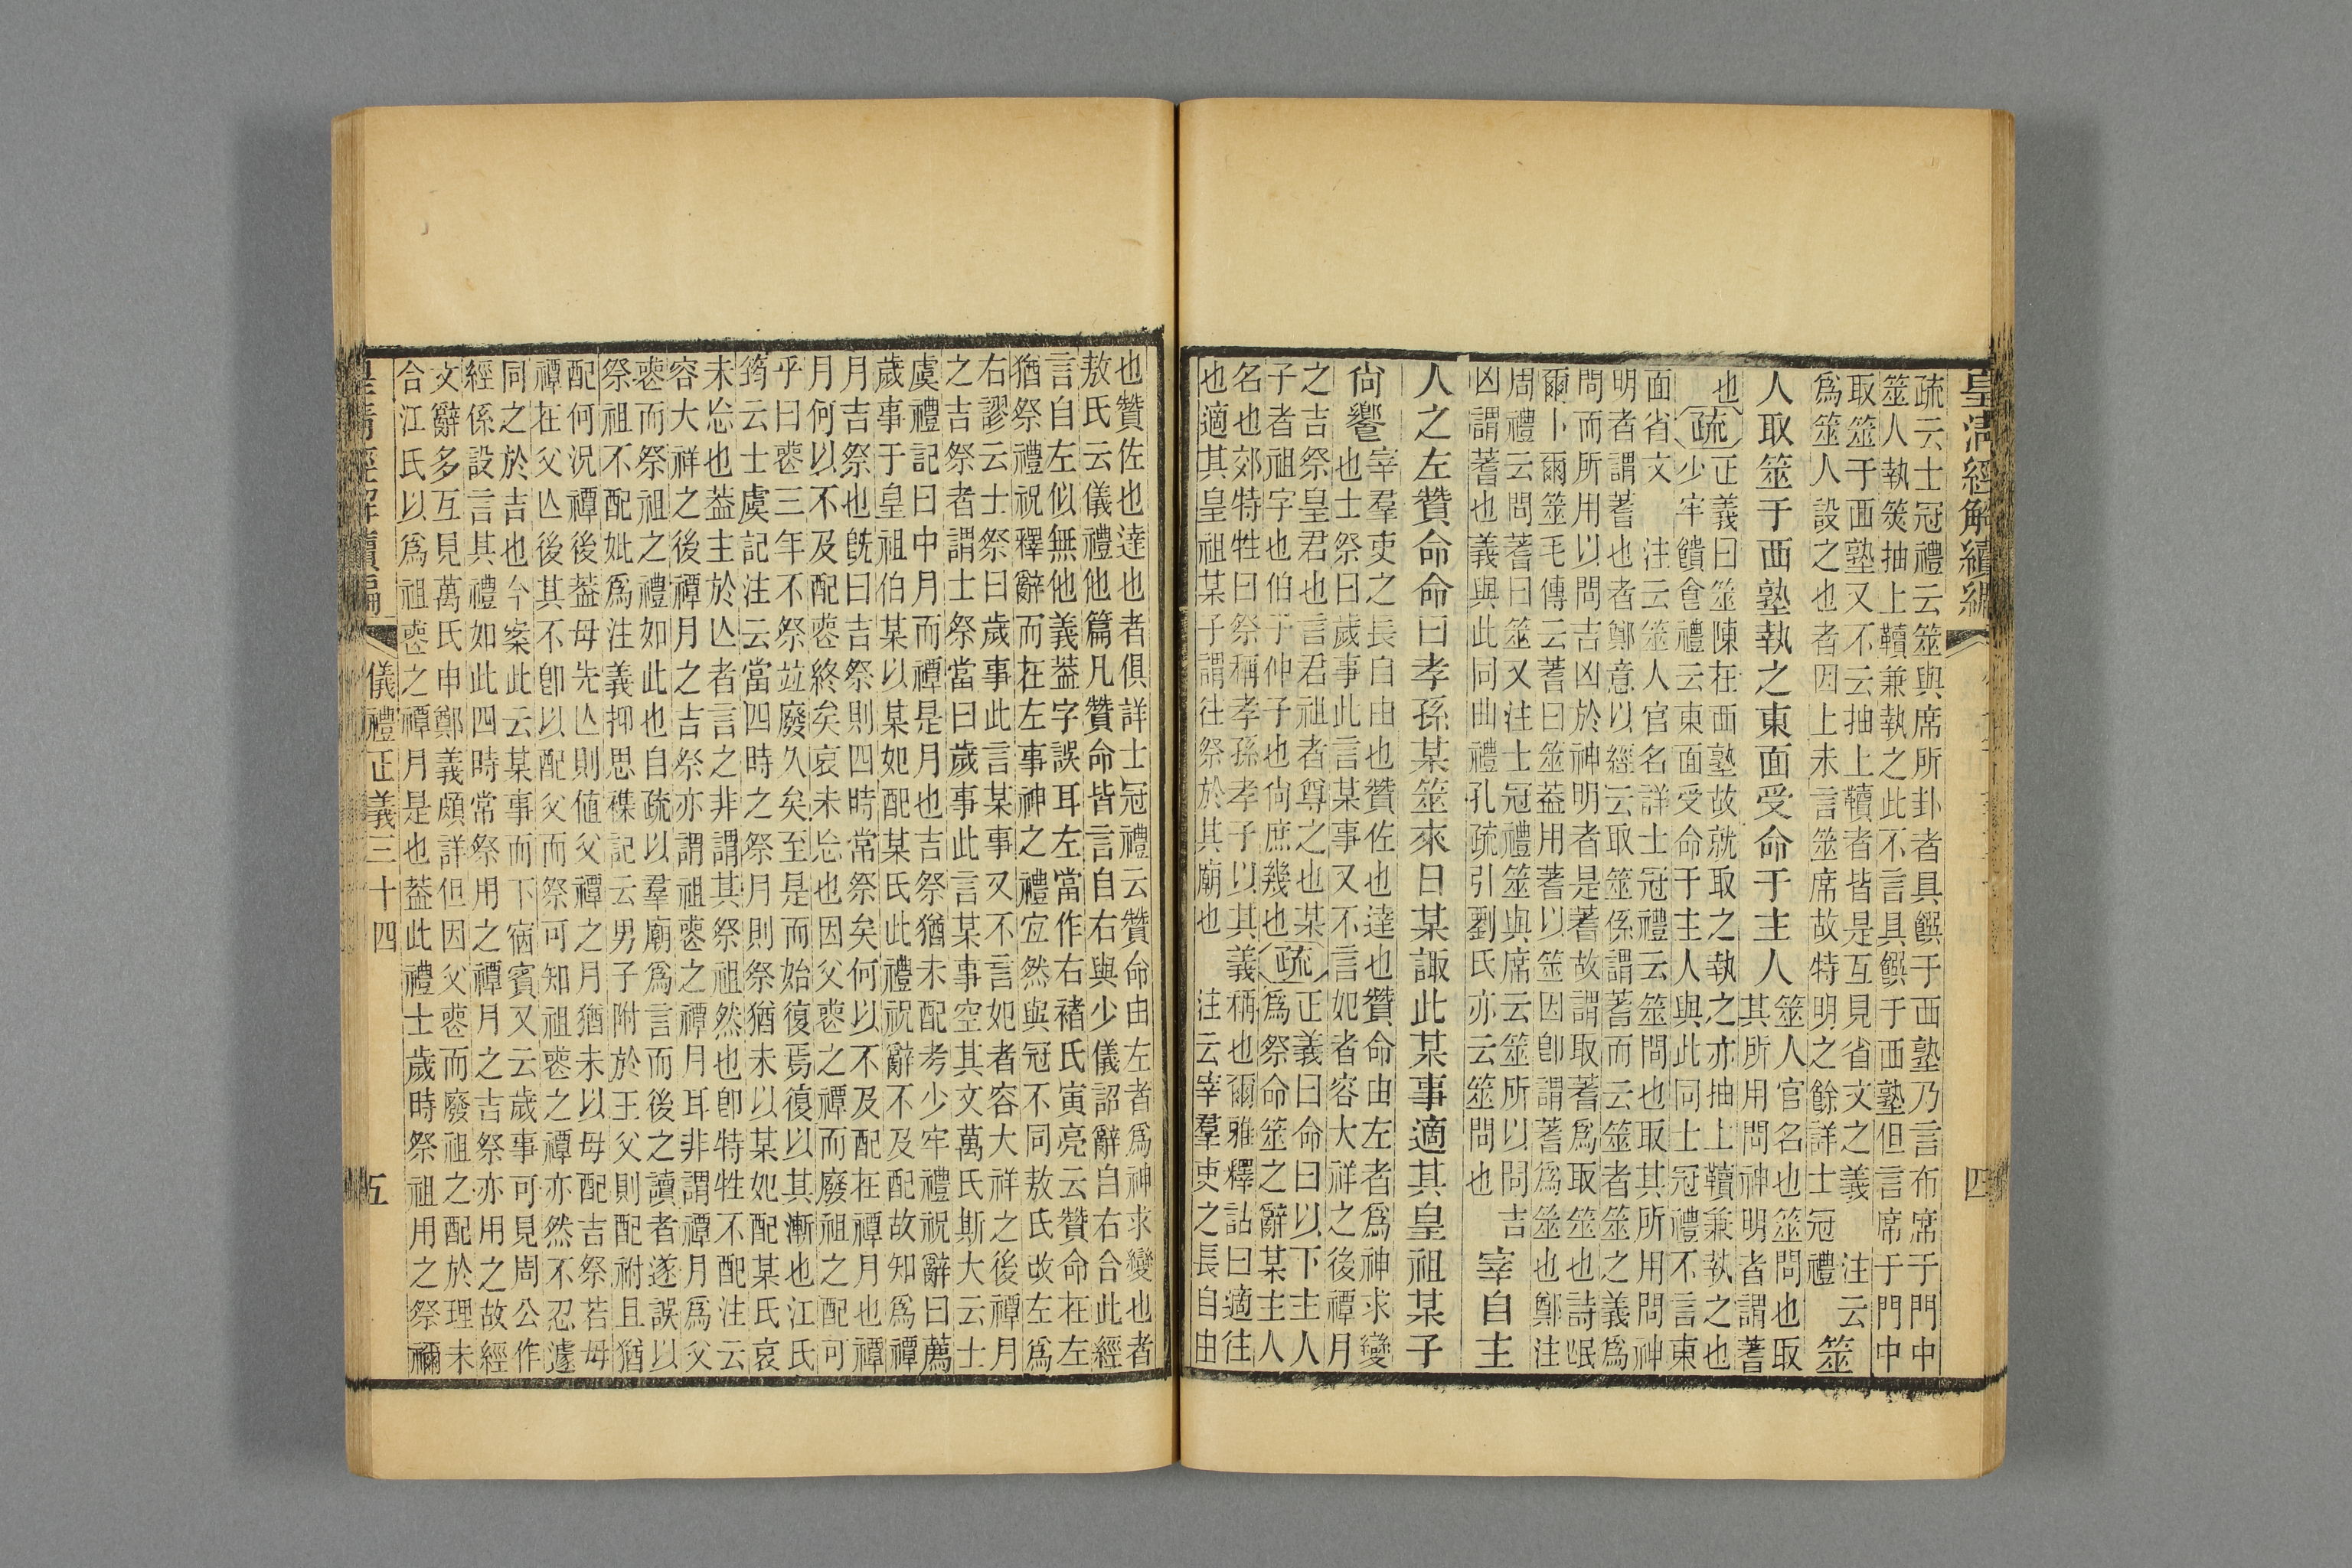 皇清經解續編
四
疏云士冠禮云筮與席所卦者具饌于西塾乃言布席于門中
筮人執筴抽上韇兼執之此不言具饌于西塾但言席于門中
取筮于西塾又不云抽上韇者皆是互見省文之義 注云筮
爲筮人設之也者因上未言筮席故特明之餘詳士冠禮
人取筮于西塾執之東面受命于主人
筮人官名也筮問也取
其所用問神明者謂蓍
也
疏
正義曰筮陳在西塾故就取之執之亦抽上韇兼執之也
少牢饋食禮云東面受命于主人與此同士冠禮不言東
面省文 注云筮人官名詳士冠禮云筮問也取其所用問神
明者謂蓍也者鄭意以經云取筮係謂蓍而云筮者筮之義爲
問而所用以問吉凶於神明者是蓍故謂取蓍爲取筮也詩氓
爾卜爾筮毛傳云蓍曰筮葢用蓍以筮因卽謂蓍爲筮也鄭注
周禮云問蓍曰筮又注士冠禮筮與席云筮所以問吉
凶謂蓍也義與此同曲禮孔疏引劉氏亦云筮問也
宰自主
人之左贊命命曰孝孫某筮來日某諏此某事適其皇祖某子
尙饗
宰羣吏之長自由也贊佐也達也贊命由左者爲神求變
也士祭曰歲事此言某事又不言妃者容大祥之後禫月
之吉祭皇君也言君祖者尊之也某
子者祖字也伯子仲子也尙庶幾也
疏
正義曰命曰以下主人
爲祭命筮之辭某主人
名也郊特牲曰祭稱孝孫孝子以其義稱也爾雅釋詁曰適往
也適其皇祖某子謂往祭於其廟也 注云宰羣吏之長自由
也贊佐也達也者俱詳士冠禮云贊命由左者爲神求變也者
敖氏云儀禮他篇凡贊命皆言自右與少儀詔辭自右合此經
言自左似無他義葢字誤耳左當作右褚氏寅亮云贊命在左
猶祭禮祝釋辭而在左事神之禮宐然與冠不同敖氏改左爲
右謬云士祭曰歲事此言某事又不言妃者容大祥之後禫月
之吉祭者謂士祭當曰歲事此言某事空其文萬氏斯大云士
虞禮記曰中月而禫是月也吉祭猶未配考少牢禮祝辭曰薦
歲事于皇祖伯某以某妃配某氏此禮祝辭不及配故知爲禫
月吉祭也旣曰吉祭則四時常祭矣何以不及配在禫月也禫
月何以不及配喪終矣哀未忘也因父喪之禫而廢祖之配可
乎曰喪三年不祭竝廢久矣至是而始復焉復以其漸也江氏
筠云士虞記注云當四時之祭月則祭猶未以某妃配某氏哀
未忘也葢主於亾者言之非謂其祭祖然也卽特牲不配注云
容大祥之後禫月之吉祭亦謂祖喪之禫月耳非謂禫月爲父
喪而祭祖之禮如此也自疏以羣廟爲言而後之讀者遂誤以
祭祖不配妣爲注義抑思襍記云男子附於王父則配祔且猶
配何況禫後葢母先亾則値父禫之月猶未以母配吉祭若母
禫在父亾後其不卽以配父而祭可知祖喪之禫亦然不忍遽
同之於吉也今案此云某事而下宿賓又云歲事可見周公作
經係設言其禮如此四時常祭用之禫月之吉祭亦用之故經
文辭多互見萬氏申鄭義頗詳但因父喪而廢祖之配於理未
合江氏以爲祖喪之禫月是也葢此禮士歲時祭祖用之祭禰
皇清經解續編
儀禮正義三十四
五